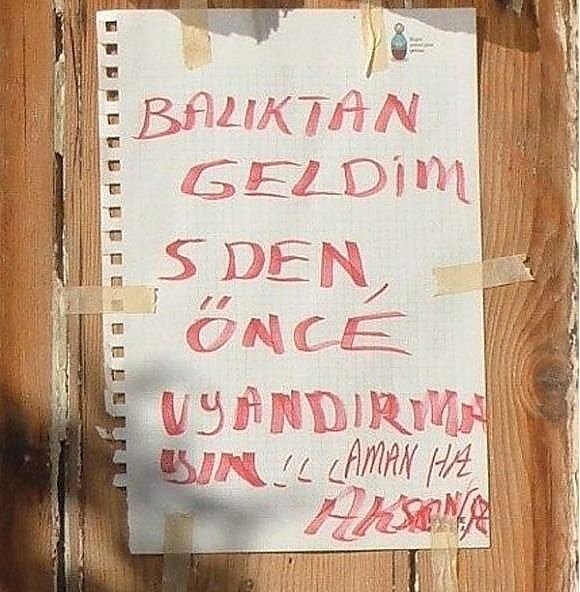 BALIKTAN
GELDİM
5 DEN,
ÖNCE
UYANDIRMA
YIN !!! AMAN HA